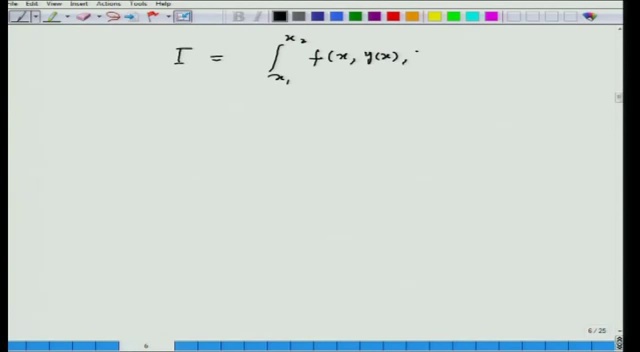 File Edit View Insert Actions Tools Help
I = ∫_{x₁}^{x₂} f(x, y(x),
6 / 25
6